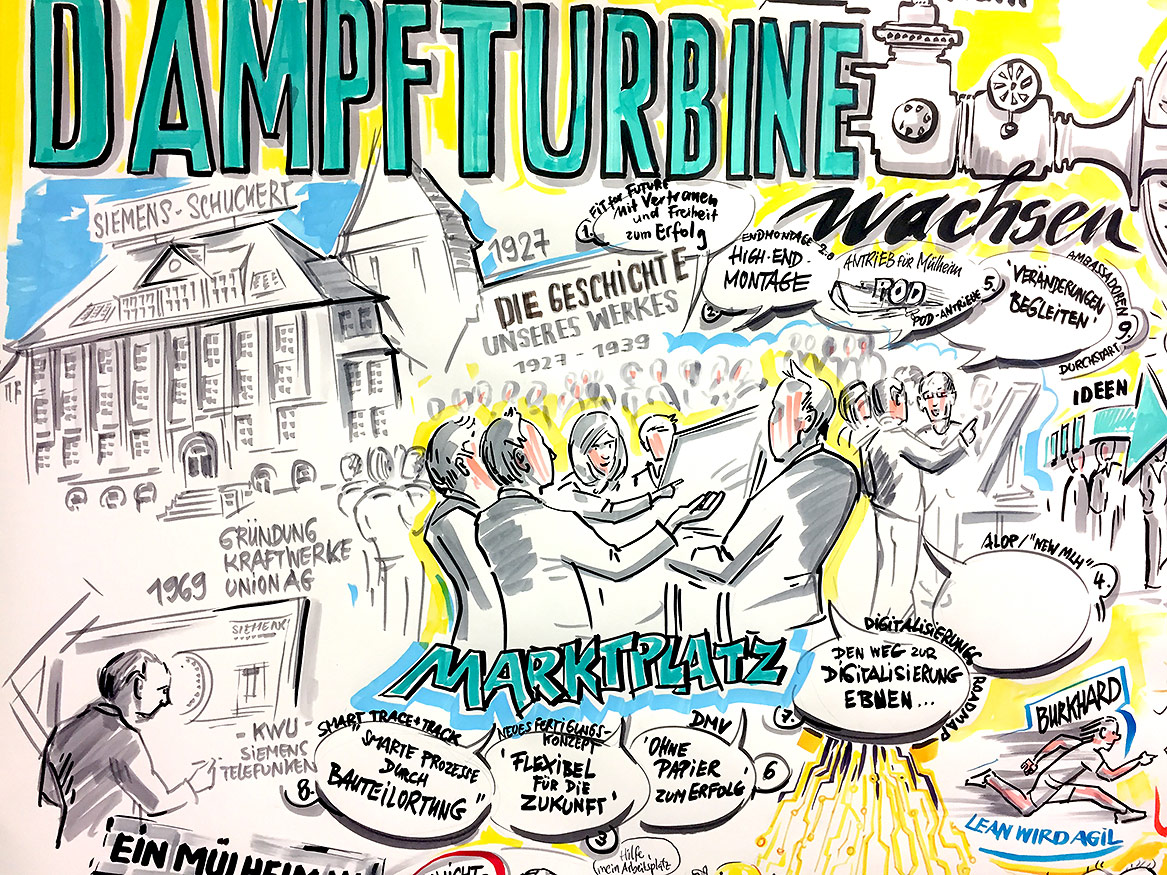 DAMPFTURBINE
SIEMENS-SCHUCKERT
1927
DIE GESCHICHTE
UNSERES WERKES
1927-1939
1.
FIT for FUTURE
Mit Vertrauen
und Freiheit
zum Erfolg
wachsen
ENDMONTAGE 2.0
HIGH-END-
MONTAGE
2.
ANTRIEB für Mülheim
POD
POD-ANTRIEBE
5.
AMBASSADOREN
'VERÄNDERUNGEN
BEGLEITEN'
9.
DURCHSTART
IDEEN
1969
GRÜNDUNG
KRAFTWERKE
UNION AG
SIEMENS
- KWU -
SIEMENS
TELEFUNKEN
ALOP/"NEW MLH"
4.
MARKTPLATZ
DIGITALISIERUNGS ROADMAP
DEN WEG ZUR
DIGITALISIERUNG
EBNEN...
7.
SMART TRACE+TRACK
SMARTE PROZESSE
DURCH
BAUTEILORTUNG"
8.
NEUES FERTIGUNGS-
KONZEPT
'FLEXIBEL
FÜR DIE
ZUKUNFT'
3
DMV
'OHNE
PAPIER
ZUM ERFOLG'
6
BURKHARD
LEAN WIRD AGIL
EIN MÜLHEIM
Hilfe,
mein Arbeitsplatz